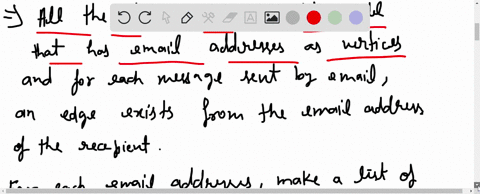 ⇒ All the
that has email addresses as vertices
and for each message sent by email,
an edge exists from the email address
of the recepient.
each email addresses, make a list of